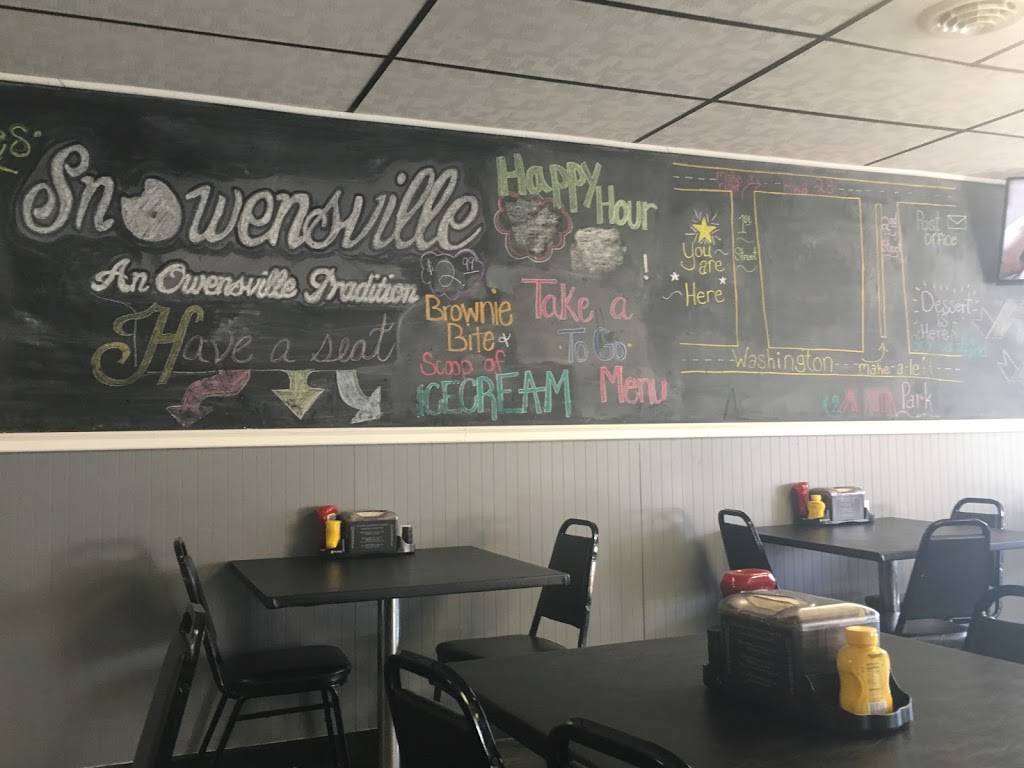 Snowensville
An Owensville Tradition
Have a seat
Happy
Hour
$2.99
Brownie
Bite &
Scoop of
ICECREAM
Take a
To Go
Menu
!
You
are
Here
1st
Street
Post
office
Dessert
is
Here
Washington
make a left
Park